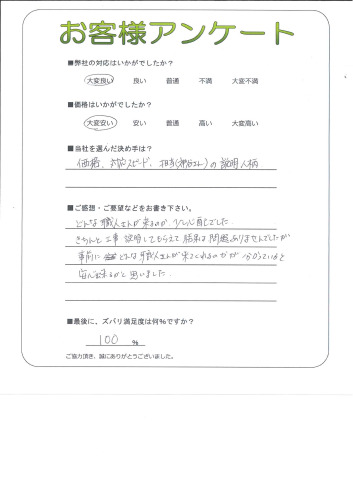 お客様アンケート
■弊社の対応はいかがでしたか？
大変良い 良い 普通 不満 大変不満
■価格はいかがでしたか？
大変安い 安い 普通 高い 大変高い
■当社を選んだ決め手は？
価格、対応スピード、担当( さん)の説明、人柄
■ご感想・ご要望などをお書き下さい。
どんな職人さんが来るのか、少し心配でした。
きちんと工事、説明してもらえて結果は問題ありませんでしたが
事前に どんな職人さんが来てくれるのかが、分かっていると
安心出来るかと思いました。
■最後に、ズバリ満足度は何%ですか？
100 %
ご協力頂き、誠にありがとうございました。